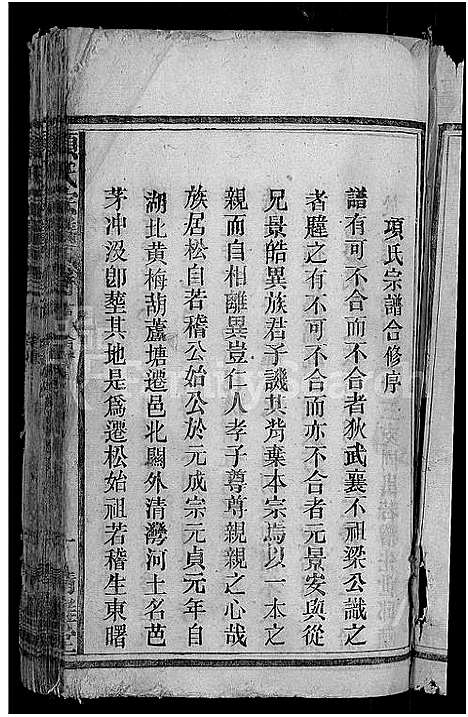 項氏宗譜合修序
譜有可不合而不合者狄武襄不祖梁公識之
者韙之有不可不合而亦不合者元景安與從
兄景皓異族君子譏其背棄本宗焉以一本之
親而自相離異豈仁人孝子尊尊親親之心哉
族居松自若稽公始公於元成宗元貞元年自
湖北黃梅葫蘆塘遷邑北關外清灣河土名芭
茅冲沒卽塟其地是爲遷松始祖若稽生東曙
項氏宗譜